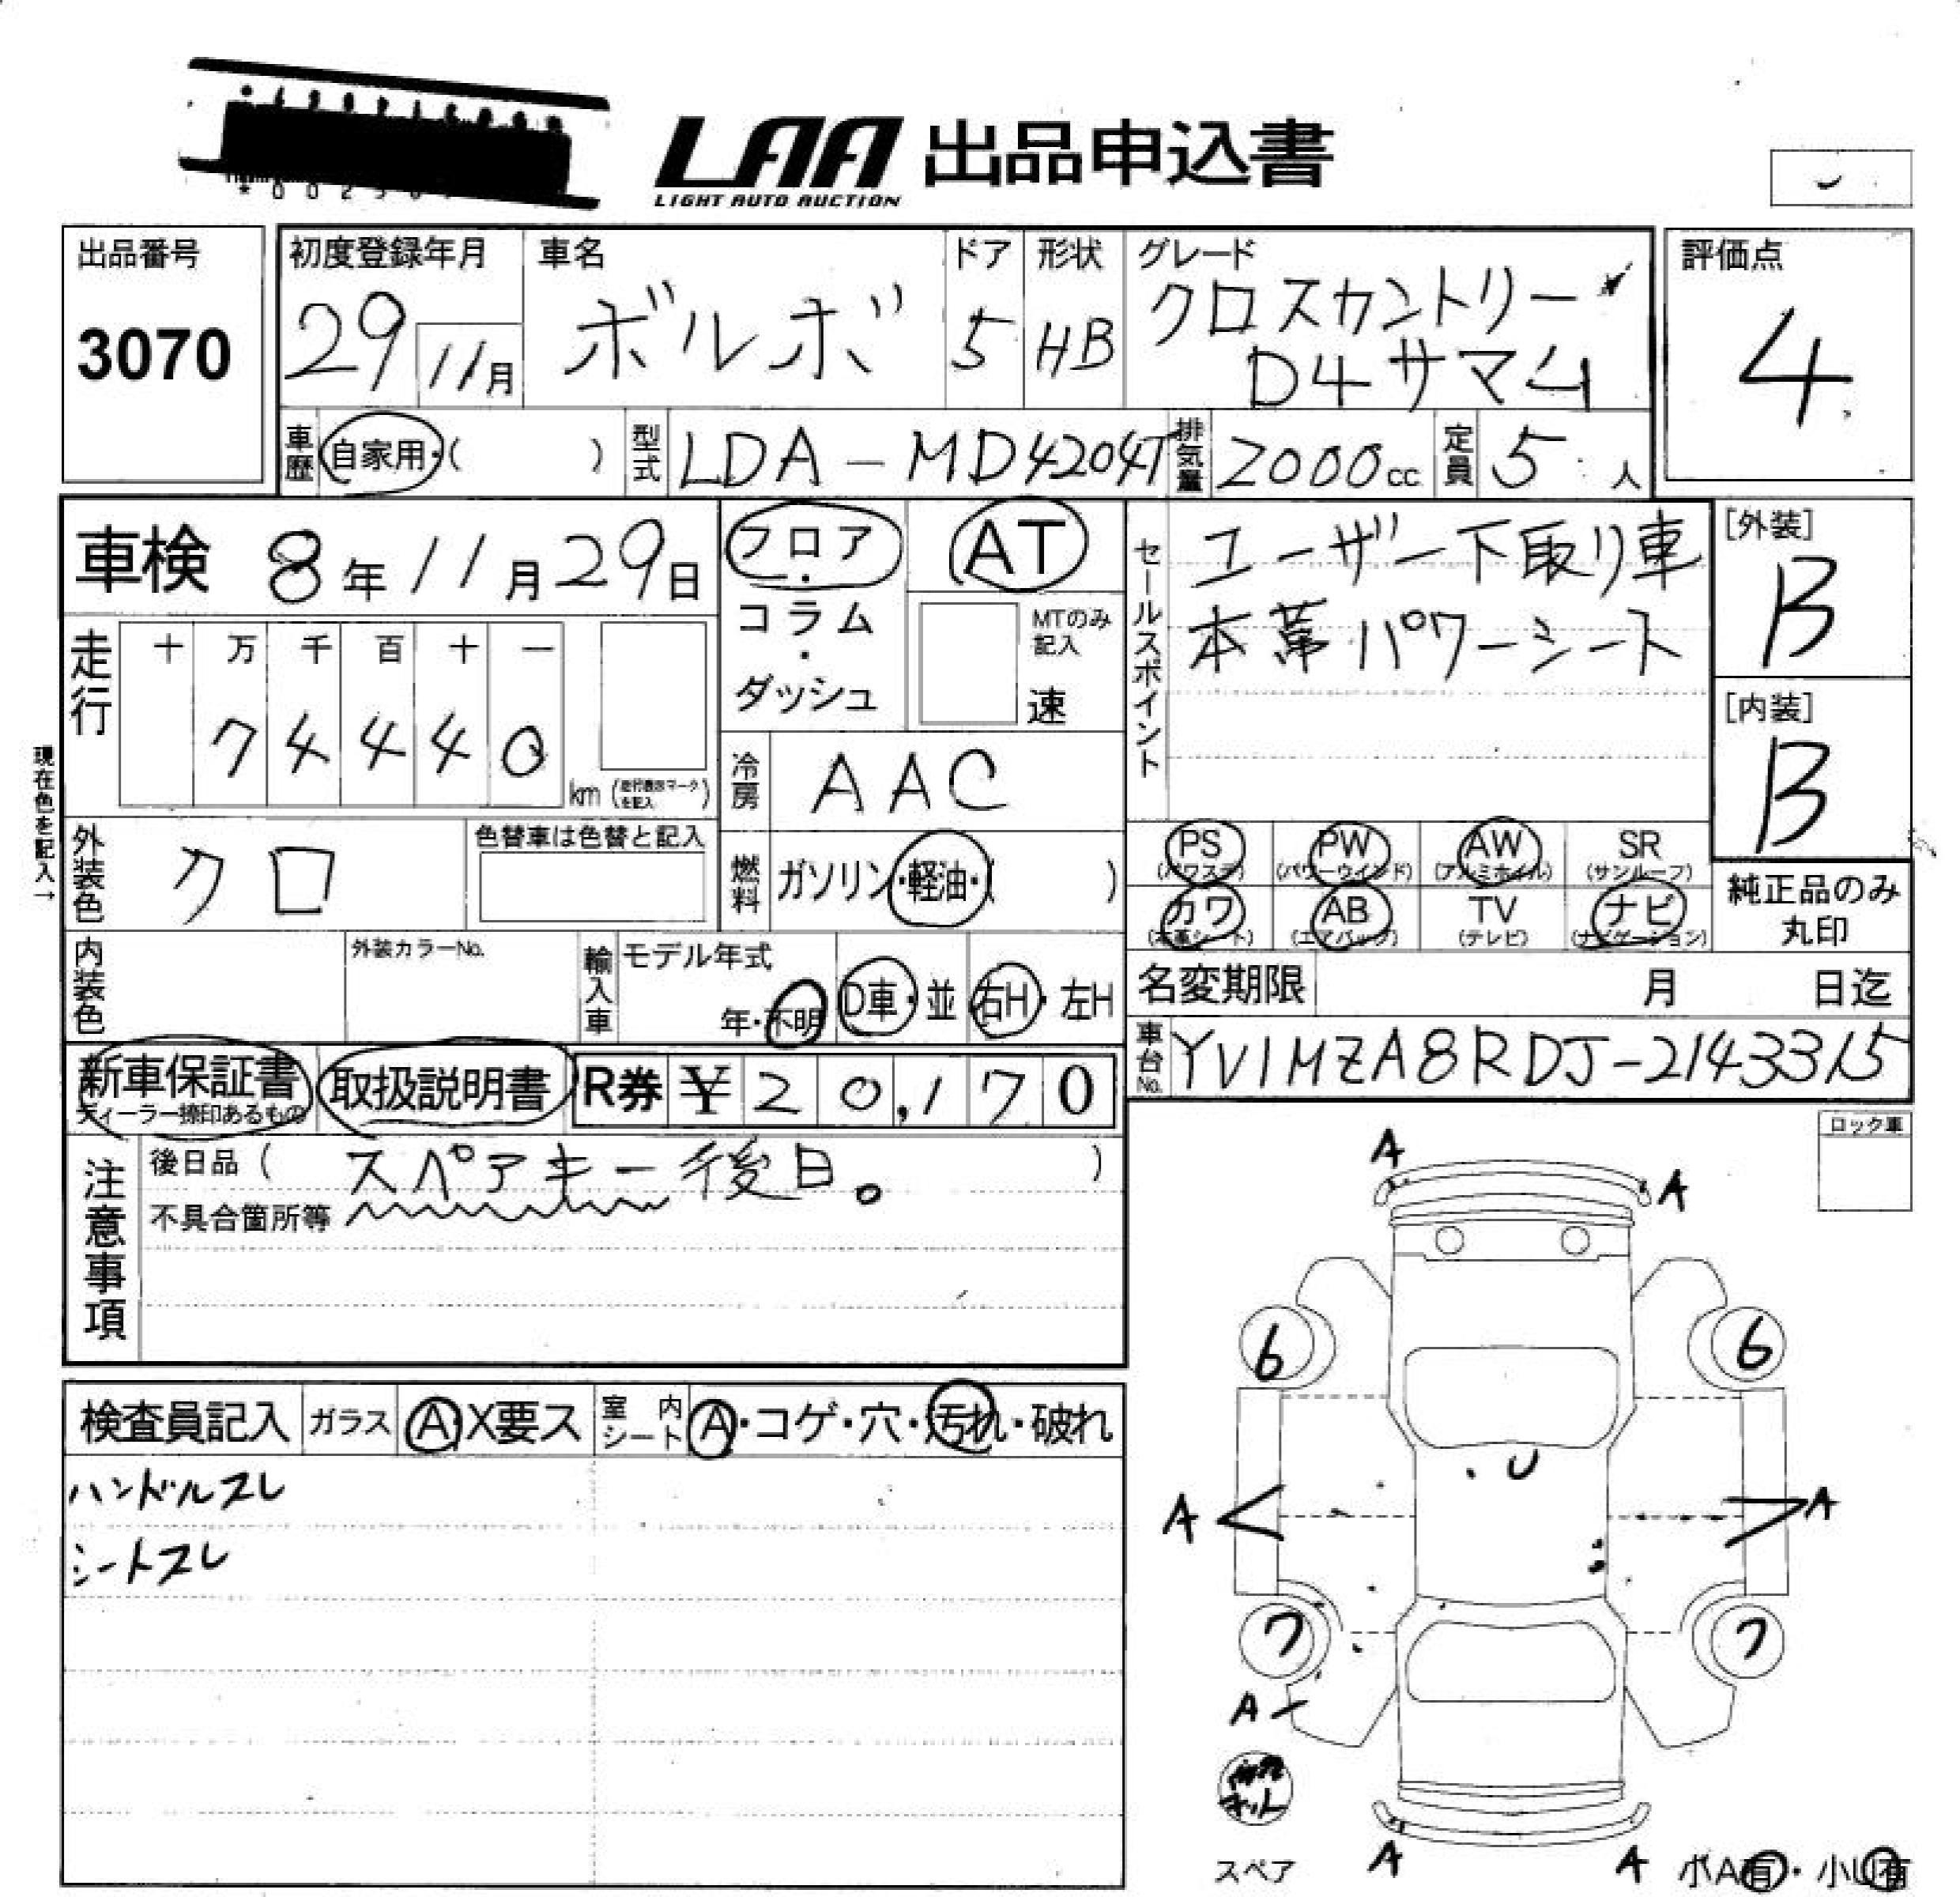 LAA 出品申込書
LIGHT AUTO AUCTION
出品番号
3070
初度登録年月
29
11月
車名
ボルボ
ドア
5
形状
HB
グレード
クロスカントリー
D4サマム
評価点
4
車歴
自家用・( )
型式
LDA-MD4204T
排気量
2000cc
定員
5人
車検 8年11月29日
フロア・コラム・ダッシュ
AT
MTのみ記入
速
セールスポイント
ユーザー下取り車
本革パワーシート
[外装]
B
[内装]
B
走行
十 万 千 百 十 一
7 4 4 4 0
km (走行表示マークを記入)
現在色を記入→
冷房
AAC
外装色
クロ
色替車は色替と記入
燃料
ガソリン・軽油・( )
PS (パワステ)
PW (パワーウインド)
AW (アルミホイル)
SR (サンルーフ)
カワ (本革シート)
AB (エアバッグ)
TV (テレビ)
ナビ (ナビゲーション)
純正品のみ丸印
内装色
外装カラーNo.
輸入車
モデル年式
年・不明
D車・並
右H・左H
名変期限 月 日迄
車台No.
YV1MZA8RDJ-2143315
新車保証書
ディーラー捺印あるもの
取扱説明書
R券 ¥20,170
注意事項
後日品 ( スペアキー後日。 )
不具合箇所等
ロック車
検査員記入
ガラス
A・X要ス
室内シート
A・コゲ・穴・汚れ・破れ
ハンドルスレ
シートスレ
A
A
6
6
U
A
A
7
7
A
キット
スペア
A
A
ボA有・小U有